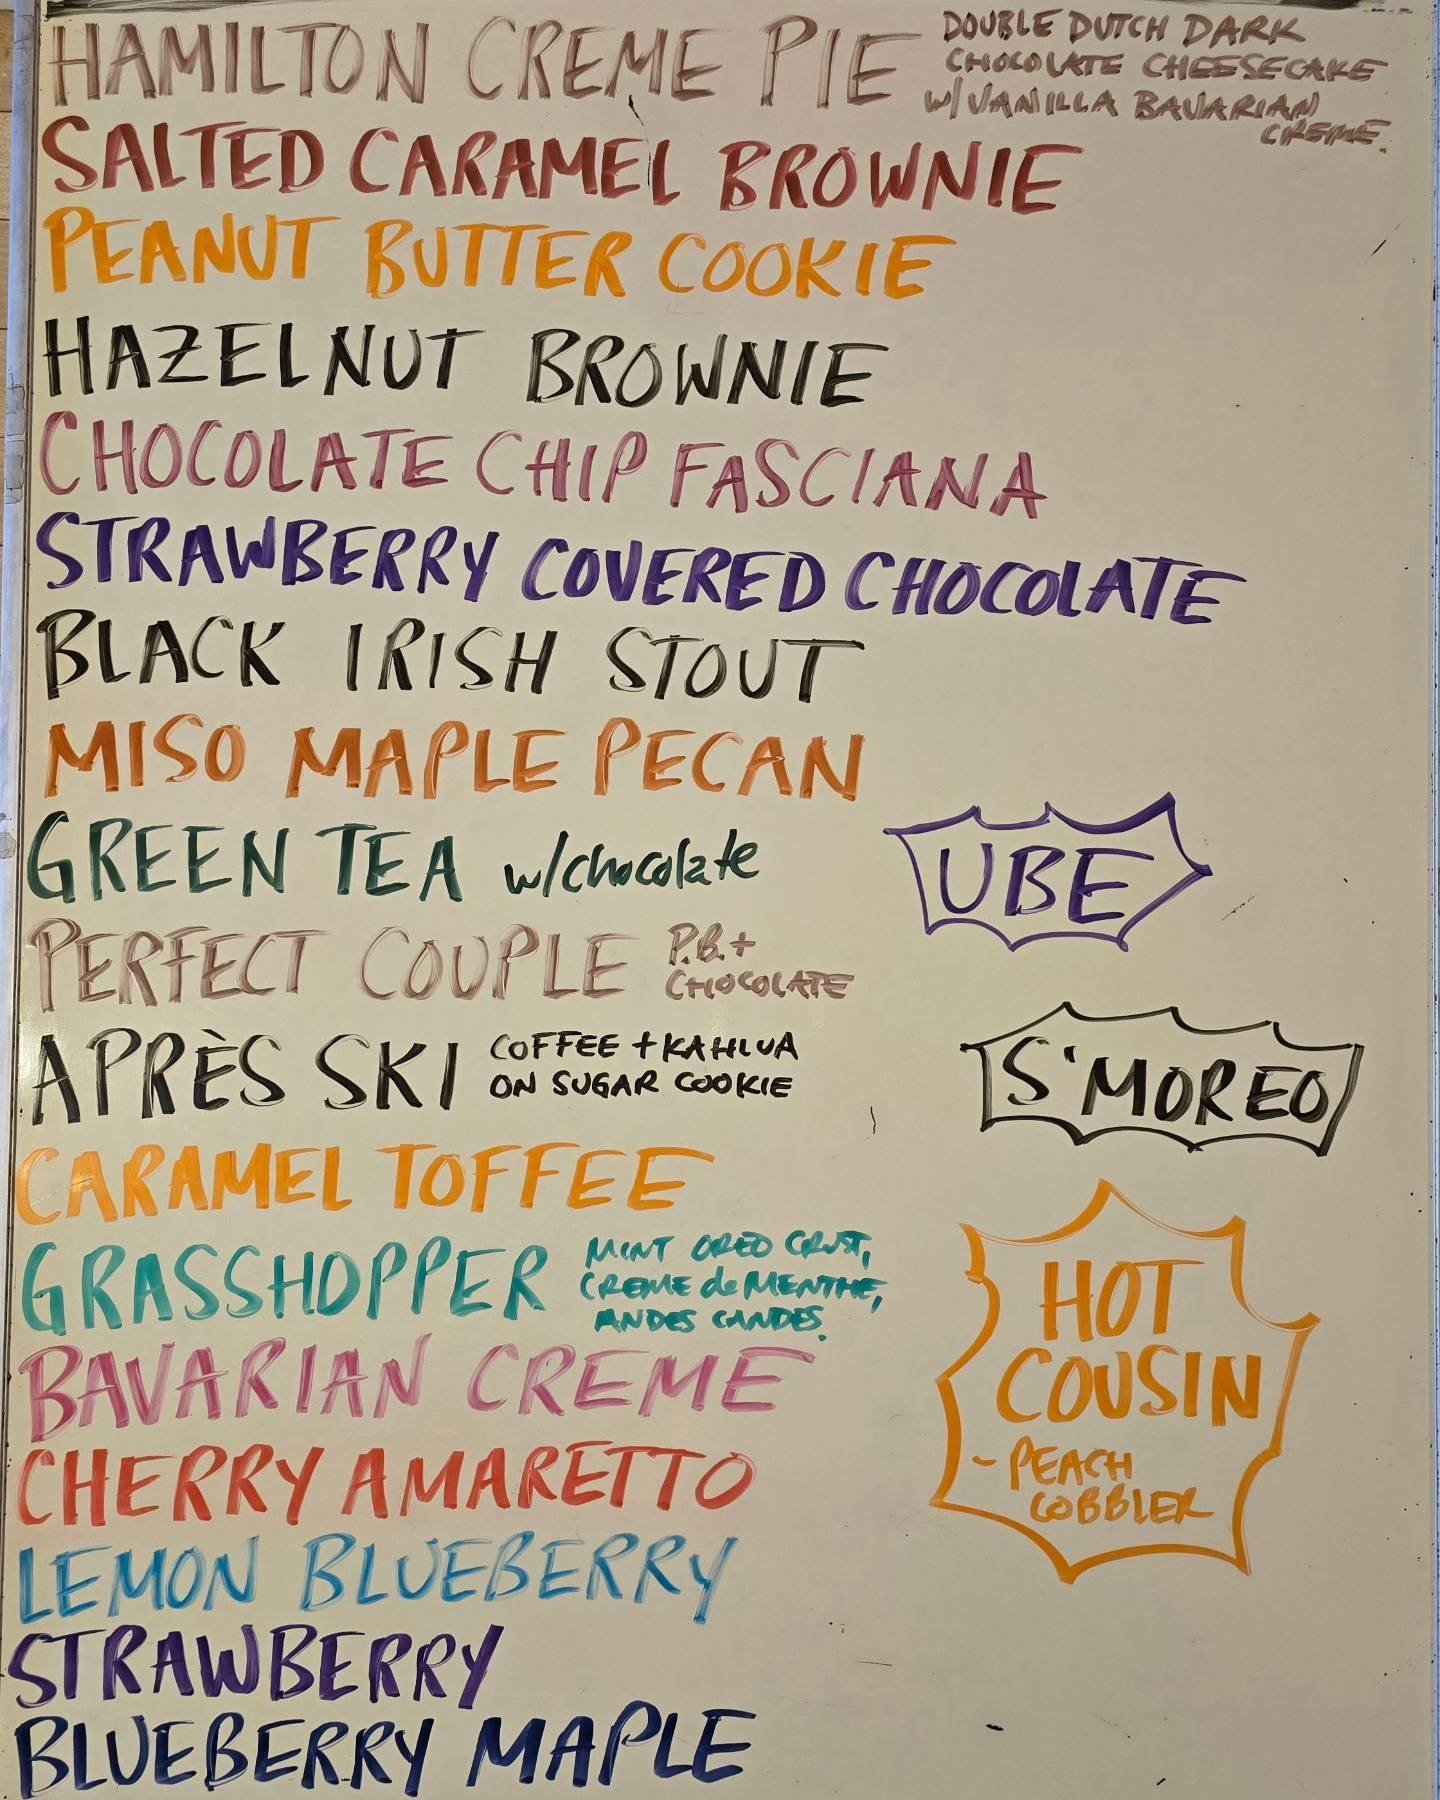 HAMILTON CREME PIE
DOUBLE DUTCH DARK
CHOCOLATE CHEESECAKE
W/VANILLA BAVARIAN
CREME.
SALTED CARAMEL BROWNIE
PEANUT BUTTER COOKIE
HAZELNUT BROWNIE
CHOCOLATE CHIP FASCIANA
STRAWBERRY COVERED CHOCOLATE
BLACK IRISH STOUT
MISO MAPLE PECAN
GREEN TEA w/chocolate
PERFECT COUPLE P.B.+
CHOCOLATE
APRÈS SKI COFFEE + KAHLUA
ON SUGAR COOKIE
CARAMEL TOFFEE
GRASSHOPPER MINT OREO CRUST,
CREME de MENTHE,
ANDES CANDES.
BAVARIAN CREME
CHERRY AMARETTO
LEMON BLUEBERRY
STRAWBERRY
BLUEBERRY MAPLE
UBE
S'MOREO
HOT
COUSIN
- PEACH
COBBLER